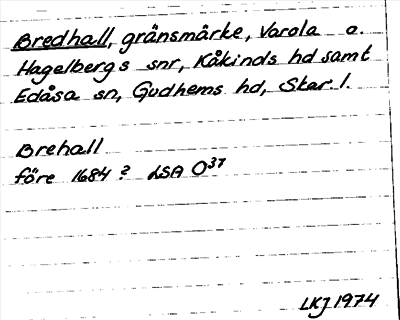 Bredhall, gränsmärke, Varola o.
Hagelbergs snr, Kåkinds hd samt
Edåsa sn, Gudhems hd, Skar. l.
Brehall
före 1684? LSA O³⁷
LKJ 1974